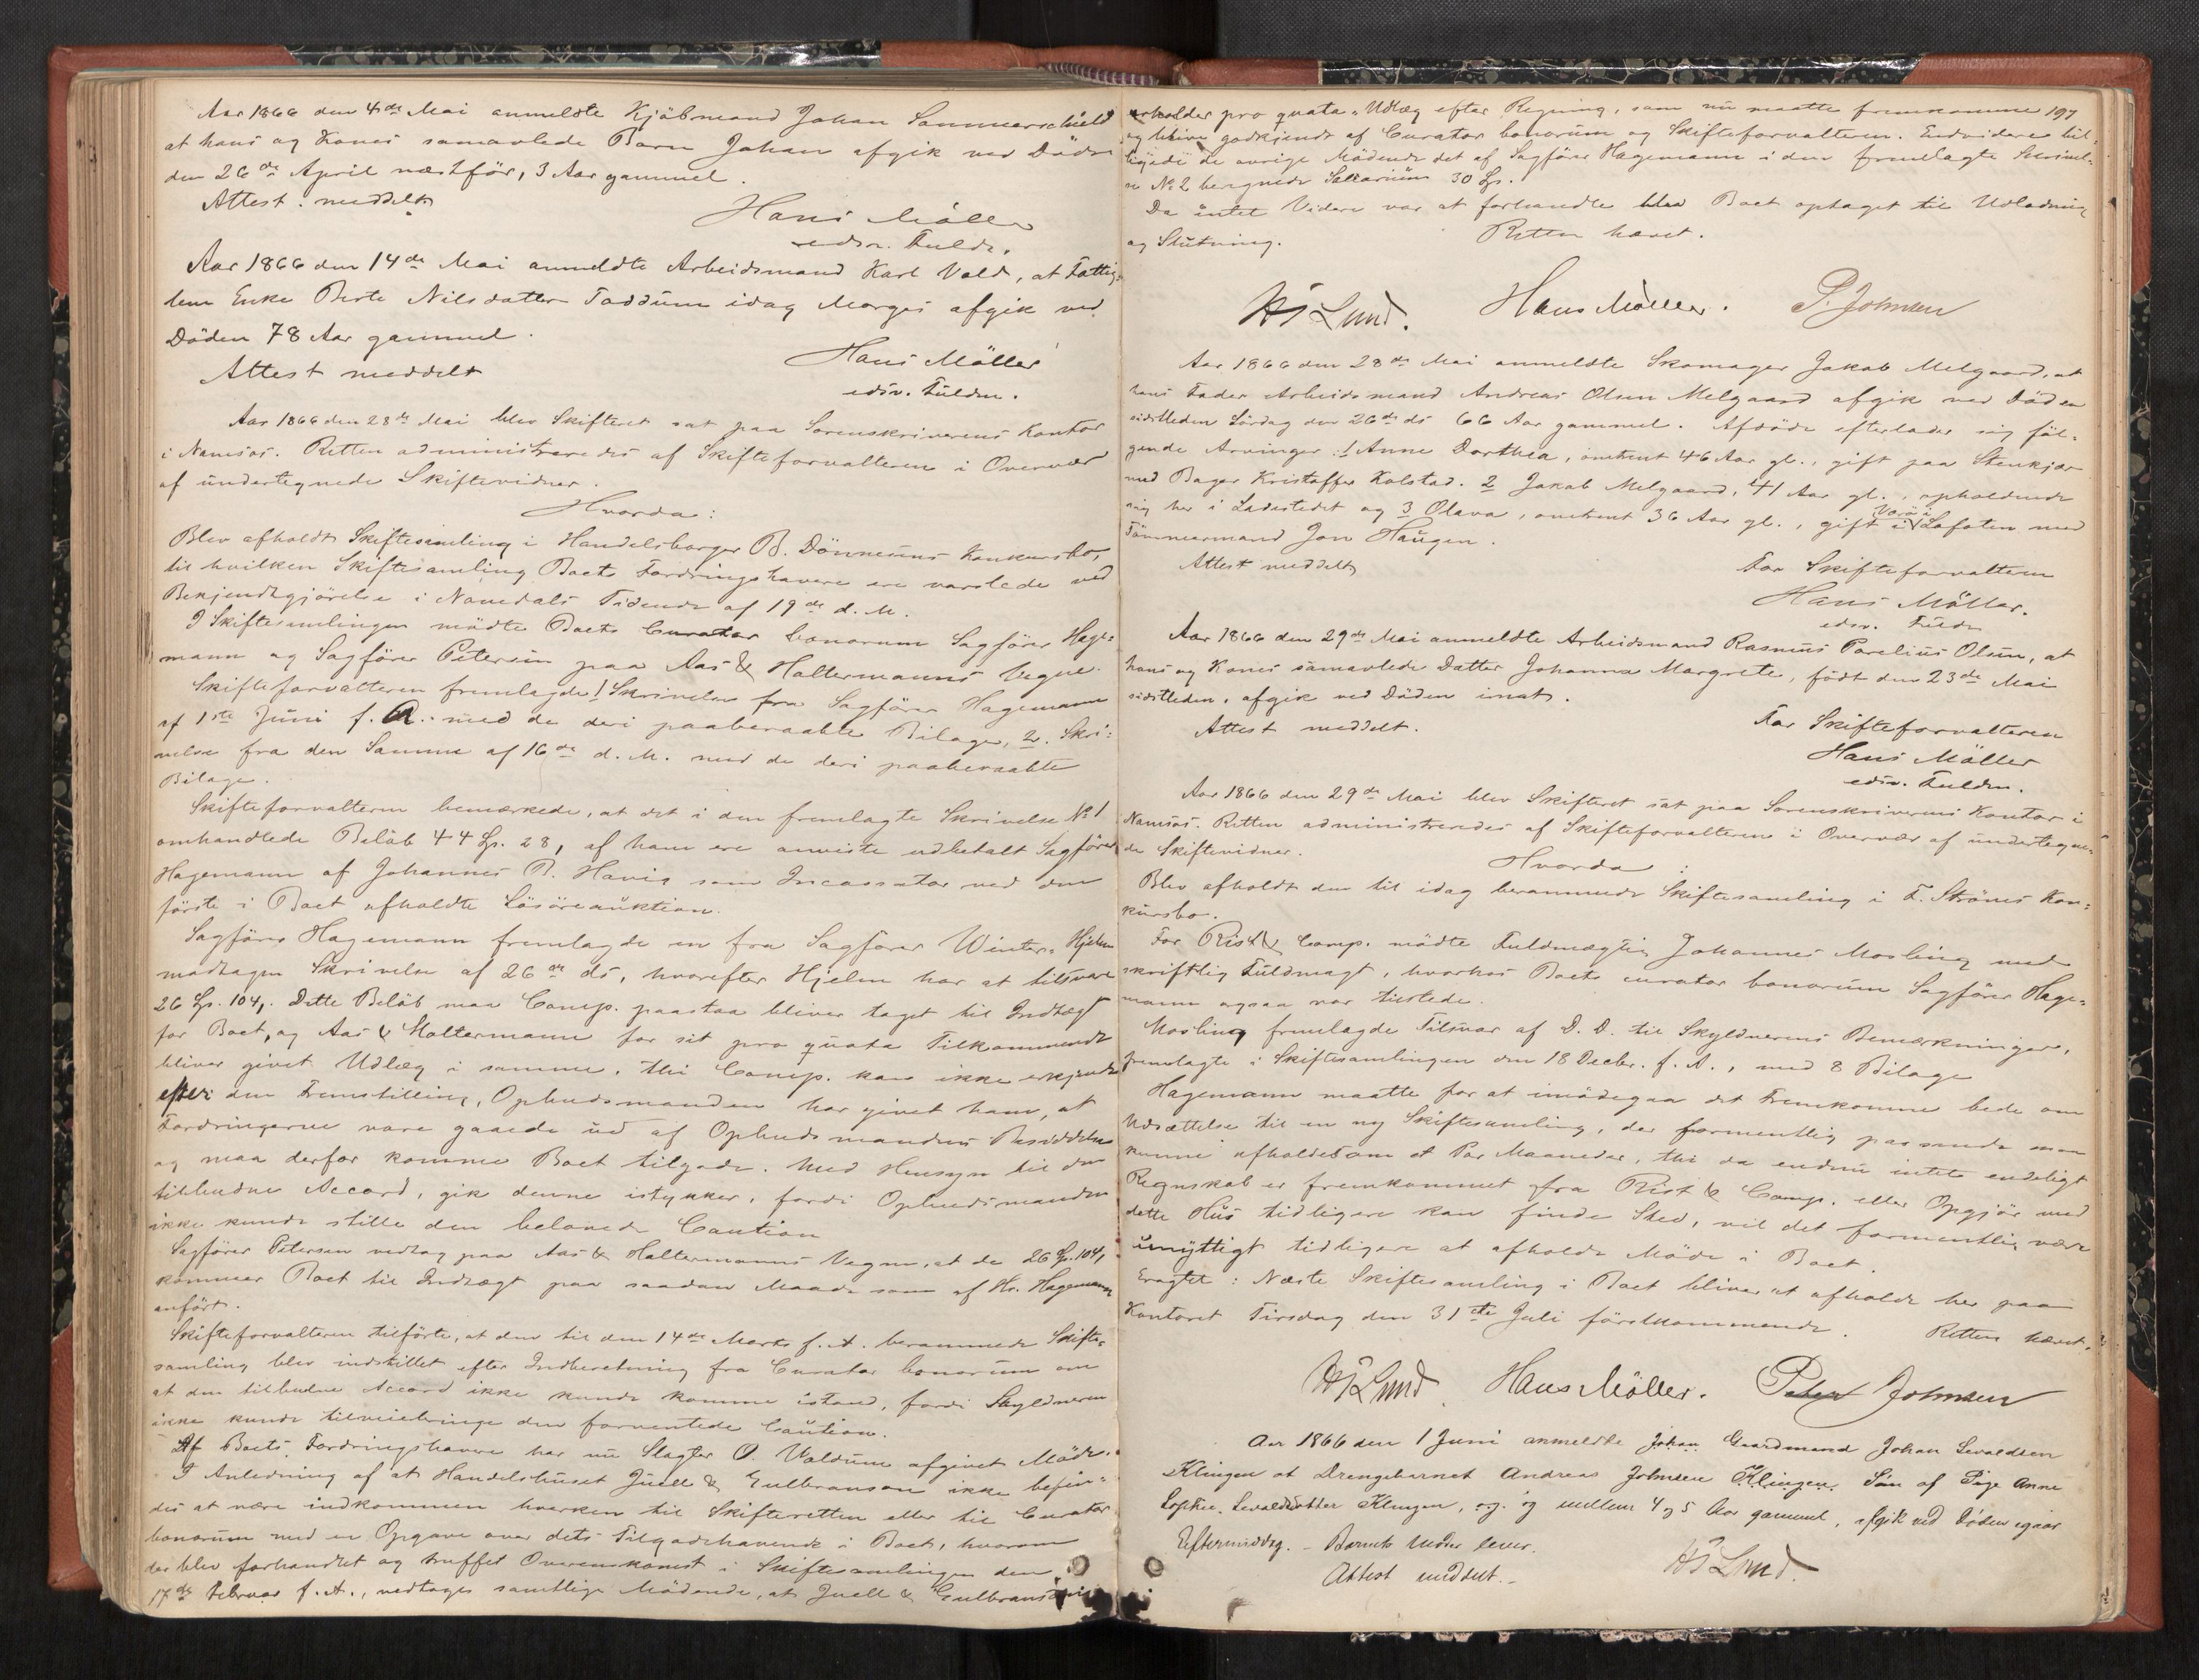 Aar 1866 den 4de Mai anmeldte Kjöbmand Johan Sommerschield
at hans og Kones samavlede Barn Johan afgik ved Döden
den 26de April næstför, 3 Aar gammel.
Attest meddelt
Hans Möller
edsv. Fuldm.
Aar 1866 den 14de Mai anmeldte Arbeidsmand Karl Vold, at Fattig-
lem Enke Berte Nilsdatter Taddum idag Morges afgik ved
Döden 78 Aar gammel.
Attest meddelt
Hans Möller
edsv. Fuldm.
Aar 1866 den 28de Mai blev Skifteret sat paa Sorenskriverens Kontor
i Namsos. Retten administreredes af Skifteforvalteren i Overvær
af undertegnede Skiftevidner.
Hvorda:
Blev afholdt Skiftesamling i Handelsborger B. Dönnesens Konkursbo,
til hvilken Skiftesamling Boets Fordringshavere ere varslede ved
Bekjendtgjörelse i Namdals Tidende af 19de d. M.
I Skiftesamlingen mödte Boets Curator bonorum Sagförer Hage-
mann og Sagförer Petersen paa Aas & Haltermanns Vegne.
Skifteforvalteren fremlagde 1 Skrivelse fra Sagförer Hagemann
af 1ste Juni f. A. med de deri paaberaabte Bilage, 2. Skri-
velse fra den Samme af 16de d. M. med de deri paaberaabte
Bilage.
Skifteforvalteren bemærkede, at det i den fremlagte Skrivelse No 1
omhandlede Belöb 44 Sp. 28, af ham ere anviste udbetalt Sagförer
Hagemann af Johannes B. Havig som Incassator ved den
förste i Boet afholdte Lösöreauktion.
Sagförer Hagemann fremlagde en fra Sagförer Winter-Hjelm
modtagen Skrivelse af 26de ds, hvorefter Hjelm har at tilsvare
26 Sp. 104,. Dette Belöb maa Comp. paastaa bliver taget til Indtægt
for Boet, og Aas & Haltermann for sit pro quota Tilkommende
bliver givet Udlæg i samme, thi Comp. kan ikke erkjende
efter den Fremstilling, Opbudsmanden har givet ham, at
Fordringerne vare gaaede ud af Opbudsmandens Besiddelse
og maa derfor komme Boet tilgode. Med Hensyn til den
tilbudne Accord, gik denne istykker, fordi Opbudsmanden
ikke kunde stille den belovede Caution
Sagförer Petersen vedtog paa Aas & Haltermanns Vegne, at de 26 Sp. 104,
kommer Boet til Indtægt paa saadan Maade som af Hr. Hagemann
anfört.
Skifteforvalteren tilförte, at den til den 14de Marts f. A. berammede Skifte-
samling blev indstillet efter Indberetning fra Curator bonorum om
at den tilbudne Accord ikke kunde komme istand, fordi Skyldneren
ikke kunde tilveiebringe den forventede Caution.
Af Boets Fordringshavere har nu Slagter O. Valdum afgivet Möde.
I Anledning af at Handelshuset Juell & Gulbranson ikke befin-
des at være indkommen hverken til Skifteretten eller til Curator
bonorum med en Opgave over dets Tilgodehavende i Boet, hvorom
der blev forhandlet og truffet Overenskomst i Skiftesamlingen den
17de Februar f. A., vedtoges samtlige Mödende, at Juell & Gulbranson
erholder pro quota Udlæg efter Regning, som nu maatte fremkomme 197
og blive godkjendt af Curator bonorum og Skifteforvalteren. Endvidere bil-
ligede de övrige Mödende det af Sagförer Hagemann i den fremlagte Skrivel-
se No 2 beregnede Sallarium 30 Sp.
Da intet Videre var at forhandle blev Boet optaget til Udlodning
og Slutning.
Retten hævet.
HS Lund. Hans Möller. P. Johnsen
Aar 1866 den 28de Mai anmeldte Skomager Jakob Melgaard, at
hans Fader Arbeidsmand Andreas Olsen Melgaard afgik ved Döden
sidstleden Lördag den 26de ds 66 Aar gammel. Afdöde efterlader sig föl-
gende Arvinger: 1 Anne Dorthea, omtrent 46 Aar gl., gift paa Stenkjær
med Bager Kristoffer Kolstad. 2 Jakob Melgaard, 41 Aar gl., opholdende
sig her i Ladestedet og 3 Olava, omtrent 36 Aar gl., gift i Værö i Lofoten med
Tömmermand Jon Haugen.
Attest meddelt
For Skifteforvalteren
Hans Möller.
edsv. Fuldm
Aar 1866 den 29de Mai anmeldte Arbeidsmand Rasmus Parelius Olsen, at
hans og Kones samavlede Datter Johanna Margrete, födt den 23de Mai
sidstleden, afgik ved Döden inat.
Attest meddelt.
For Skifteforvalteren
Hans Möller
edsv. Fuldm.
Aar 1866 den 29de Mai blev Skifteret sat paa Sorenskriverens Kontor i
Namsos. Retten administreredes af Skifteforvalteren i Overvær af undertegne-
de Skiftevidner.
Hvorda:
Blev afholdt den til idag berammede Skiftesamling i F. Ströms Kon-
kursbo.
For Rist & Comp. mödte Fuldmægtig Johannes Mosling med
skriftlig Fuldmagt, hvorhos Boets curator bonorum Sagförer Hage-
mann ogsaa var tilstede.
Mosling fremlagde Tilsvar af D. D. til Skyldnerens Bemærkninger,
fremlagte i Skiftesamlingen den 18 Decbr. f. A., med 8 Bilage
Hagemann maatte for at imödegaa det Fremkomne bede om
Udsættelse til en ny Skiftesamling, der formentlig passende
kunne afholdes om et Par Maaneder, thi da endnu intet endeligt
Regnskab er fremkommet fra Rist & Comp. eller Opgjör med
dette Hus tidligere kan finde Sted, vil det formentlig være
unyttigt tidligere at afholde Möde i Boet.
Eragtet: Næste Skiftesamling i Boet bliver at afholde her paa
Kontoret Tirsdag den 31te Juli förstkommende.
Retten hævet.
HS Lund. Hans Möller. Peter Johnsen
Aar 1866 den 1 Juni anmeldte Johan Gaardmand Johan Sevaldsen
Klingen at Drengebarnet Andreas Johnsen Klingen, Sön af Pige Anne
Sophie Sevaldsdatter Klingen, og mellem 4 og 5 Aar gammel, afgik ved Döden igaar
Eftermiddag. – Barnets Moder lever.
Attest meddelt. –
HS Lund.